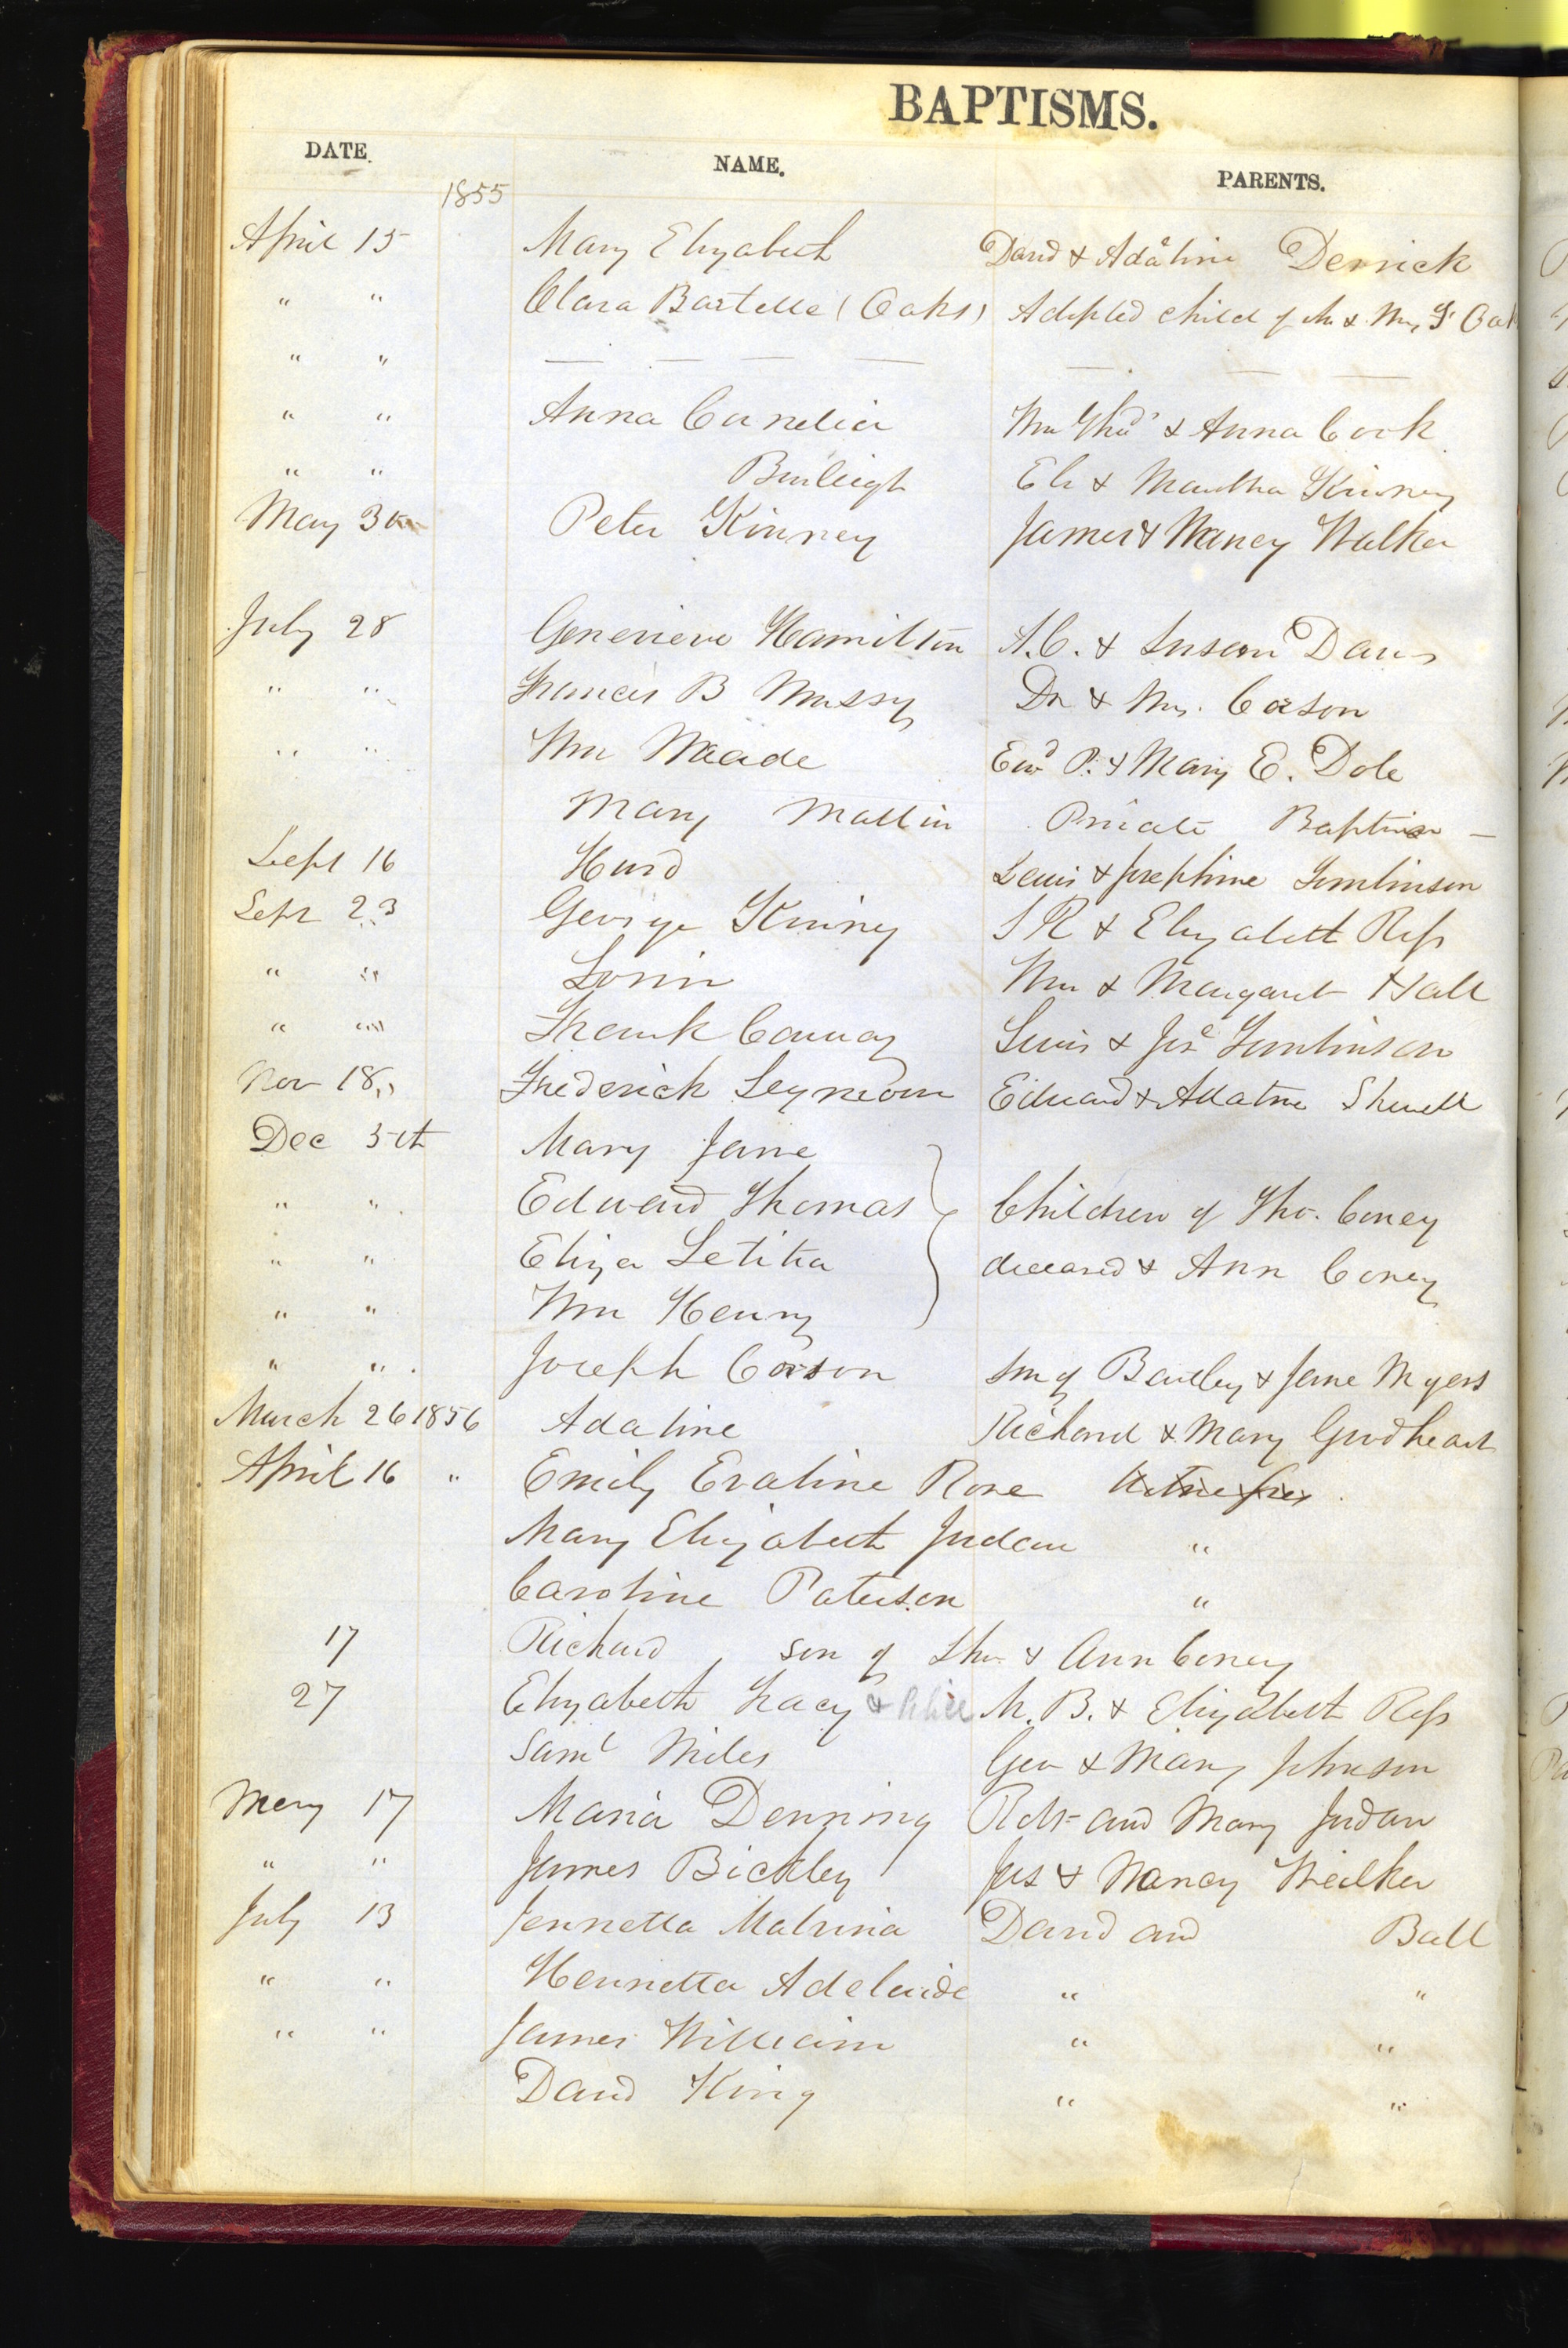 BAPTISMS.
DATE. NAME. PARENTS.
1855
April 15 Mary Elizabeth David & Adaline Derrick
" " Clara Bartelle (Oaks) Adopted child of Mr & Mrs Oak
" " — — — — — — —
" " Anna Cornelia Wm & Anna Cook
" " Burleigh Eli & Martha Kinney
May 3 Peter Kinney James & Nancy Walker
July 28 Genevieve Hamilton A.C. & Susan Davis
" " Francis B Mussy Dr & Mrs. Corson
" " Wm Meade Edwd P. & Mary E. Dole
Mary Mallin Private Baptism —
Sept 16 Hurd Lewis & Josephine Tomlinson
Sept 23 George Kinney S R & Elizabeth Ross
" " Lorin Wm & Margaret Hall
" " Frank Conway Lewis & Jose Tomlinson
Nov 18 " Frederick Edward & Shewell
Dec 5th Mary Jane
" " Edward Thomas Children of Tho. Coney
" " Eliza Letitia deceased & Ann Coney
" " Wm Henry
" " Joseph Corson son of & Jane Myers
March 26 1856 Adaline Richard & Mary Goodheart
April 16 " Emily Evaline Rose Witnesses
Mary Elizabeth Judan "
Caroline Paterson "
17 Richard, son of Tho & Ann Coney
27 Elizabeth Tracy & Alice M. B. & Elizabeth Ross
Saml Miles Geo & Mary Johnson
May 17 Maria Denning Robt and Mary Judan
" " James Bickley Jas & Nancy Walker
July 13 Jennetta Malvina David and Ball
" " Hennetta Adelaide " "
" " James William " "
David King " "